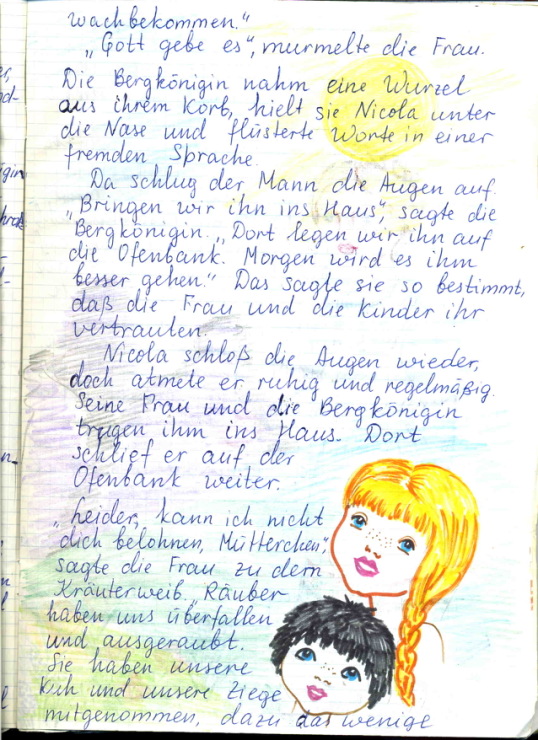 wachbekommen."
„Gott gebe es", murmelte die Frau.
Die Bergkönigin nahm eine Wurzel
aus ihrem Korb, hielt sie Nicola unter
die Nase und flüsterte Worte in einer
fremden Sprache.
Da schlug der Mann die Augen auf.
„Bringen wir ihn ins Haus", sagte die
Bergkönigin. „Dort legen wir ihn auf
die Ofenbank. Morgen wird es ihm
besser gehen." Das sagte sie so bestimmt,
daß die Frau und die Kinder ihr
vertrauten.
Nicola schloß die Augen wieder,
doch atmete er ruhig und regelmäßig.
Seine Frau und die Bergkönigin
trugen ihm ins Haus. Dort
schlief er auf der
Ofenbank weiter.
„Leider, kann ich nicht
dich belohnen, Mütterchen",
sagte die Frau zu dem
Kräuterweib. „Räuber
haben uns überfallen
und ausgeraubt.
Sie haben unsere
Kuh und unsere Ziege
mitgenommen, dazu das wenige